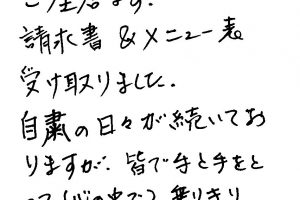 ご在居ます.
請求書 & メニュー表
受け取りました.
自粛の日々が続いてお
りますが、皆で手と手をと
って(心の中で)乗りきり